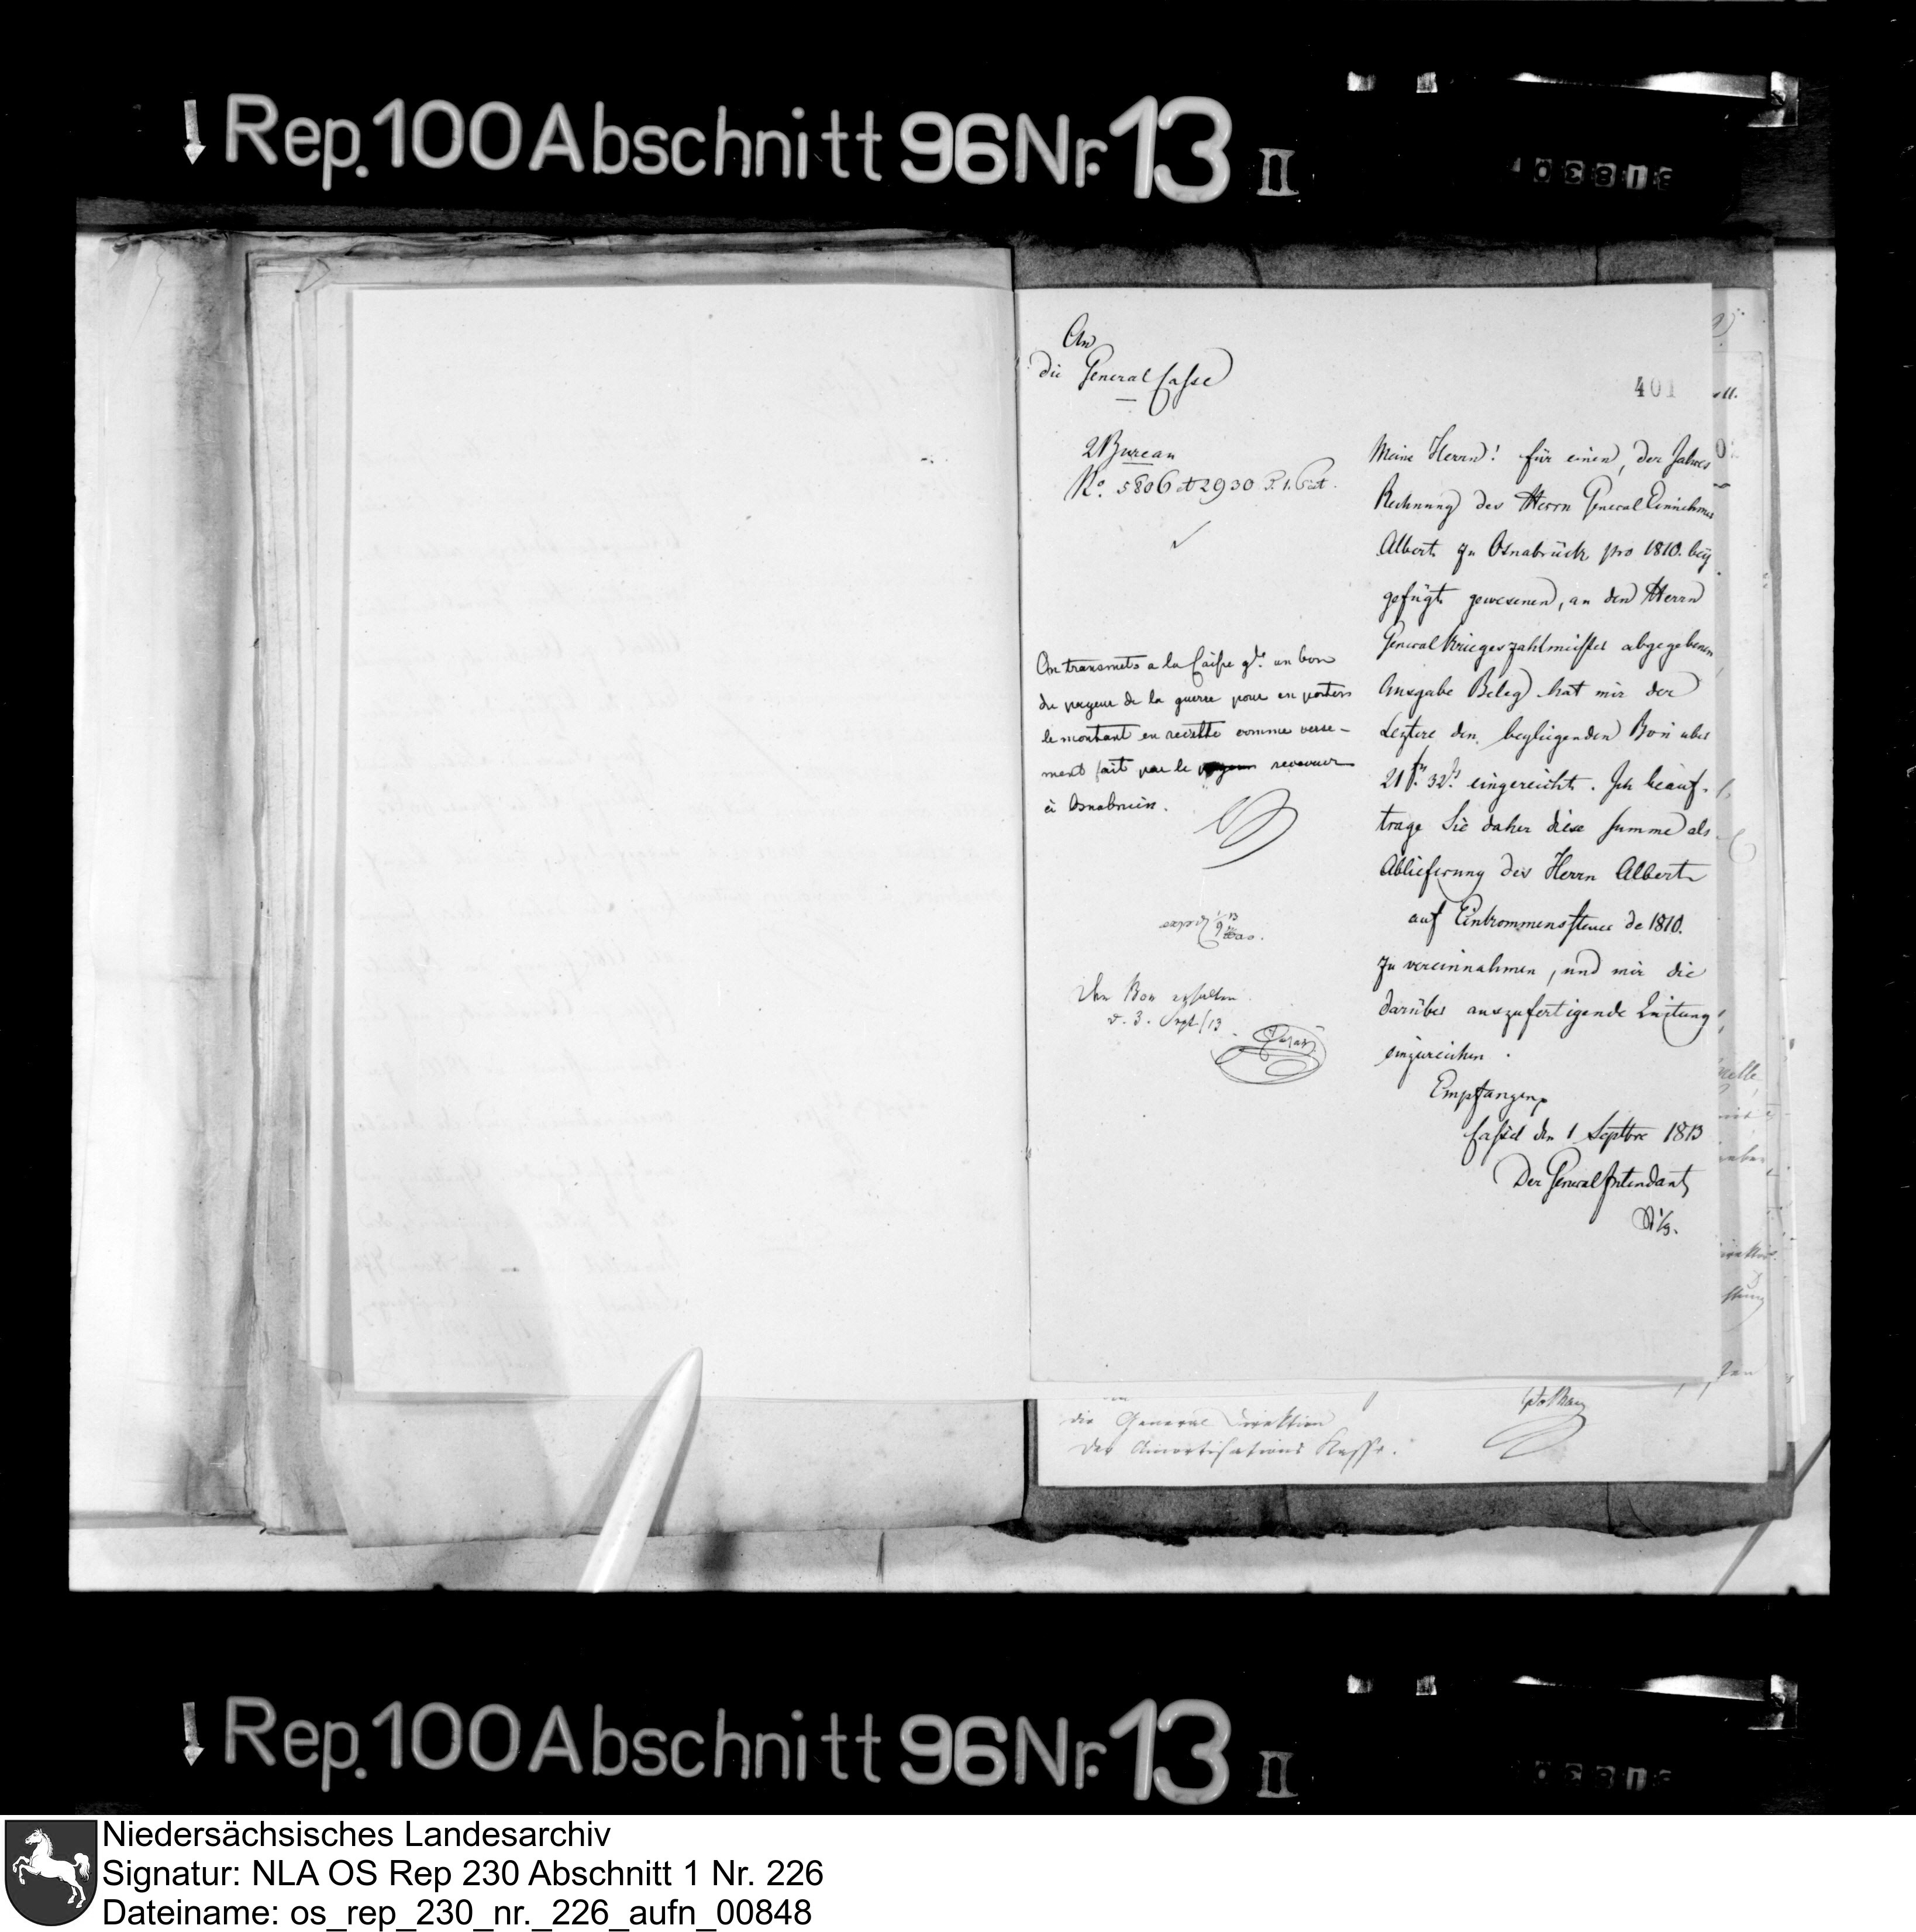 Rep. 100 Abschnitt 96 Nr. 13 II
An
die General Casse
401
2 Bureau
No. 5806 et 2930
Meine Herrn! für einen, der Jahres
Rechnung des Herrn General Einnehmer
Albert zu Osnabrück pro 1810. bey
gefügt gewesenen, an den Herrn
General Kriegeszahlmeister abgegebenen
Ausgabe Beleg hat mir der
Leztere den beyliegenden Bon über
21 fr. 32 eingereicht. Ich beauf-
trage Sie daher diese Summe als
Ablieferung des Herrn Albert
auf Einkommensteuer de 1810.
zu vereinnahmen, und mir die
darüber auszufertigende Quitung
einzureichen.
Empfangen
Cassel den 1 Septbre 1813
Der General Intendant
On transmets a la Caisse gle. un bon
du payeur de la guerre pour en porter
le montant en recette comme verse-
ment fait par le receveur
à Osnabruck.
Den Bon erhalten
d. 3. Sept/13
die General Direktion
der Amortisations Kasse.
Rep. 100 Abschnitt 96 Nr. 13 II
Niedersächsisches Landesarchiv
Signatur: NLA OS Rep 230 Abschnitt 1 Nr. 226
Dateiname: os_rep_230_nr._226_aufn_00848